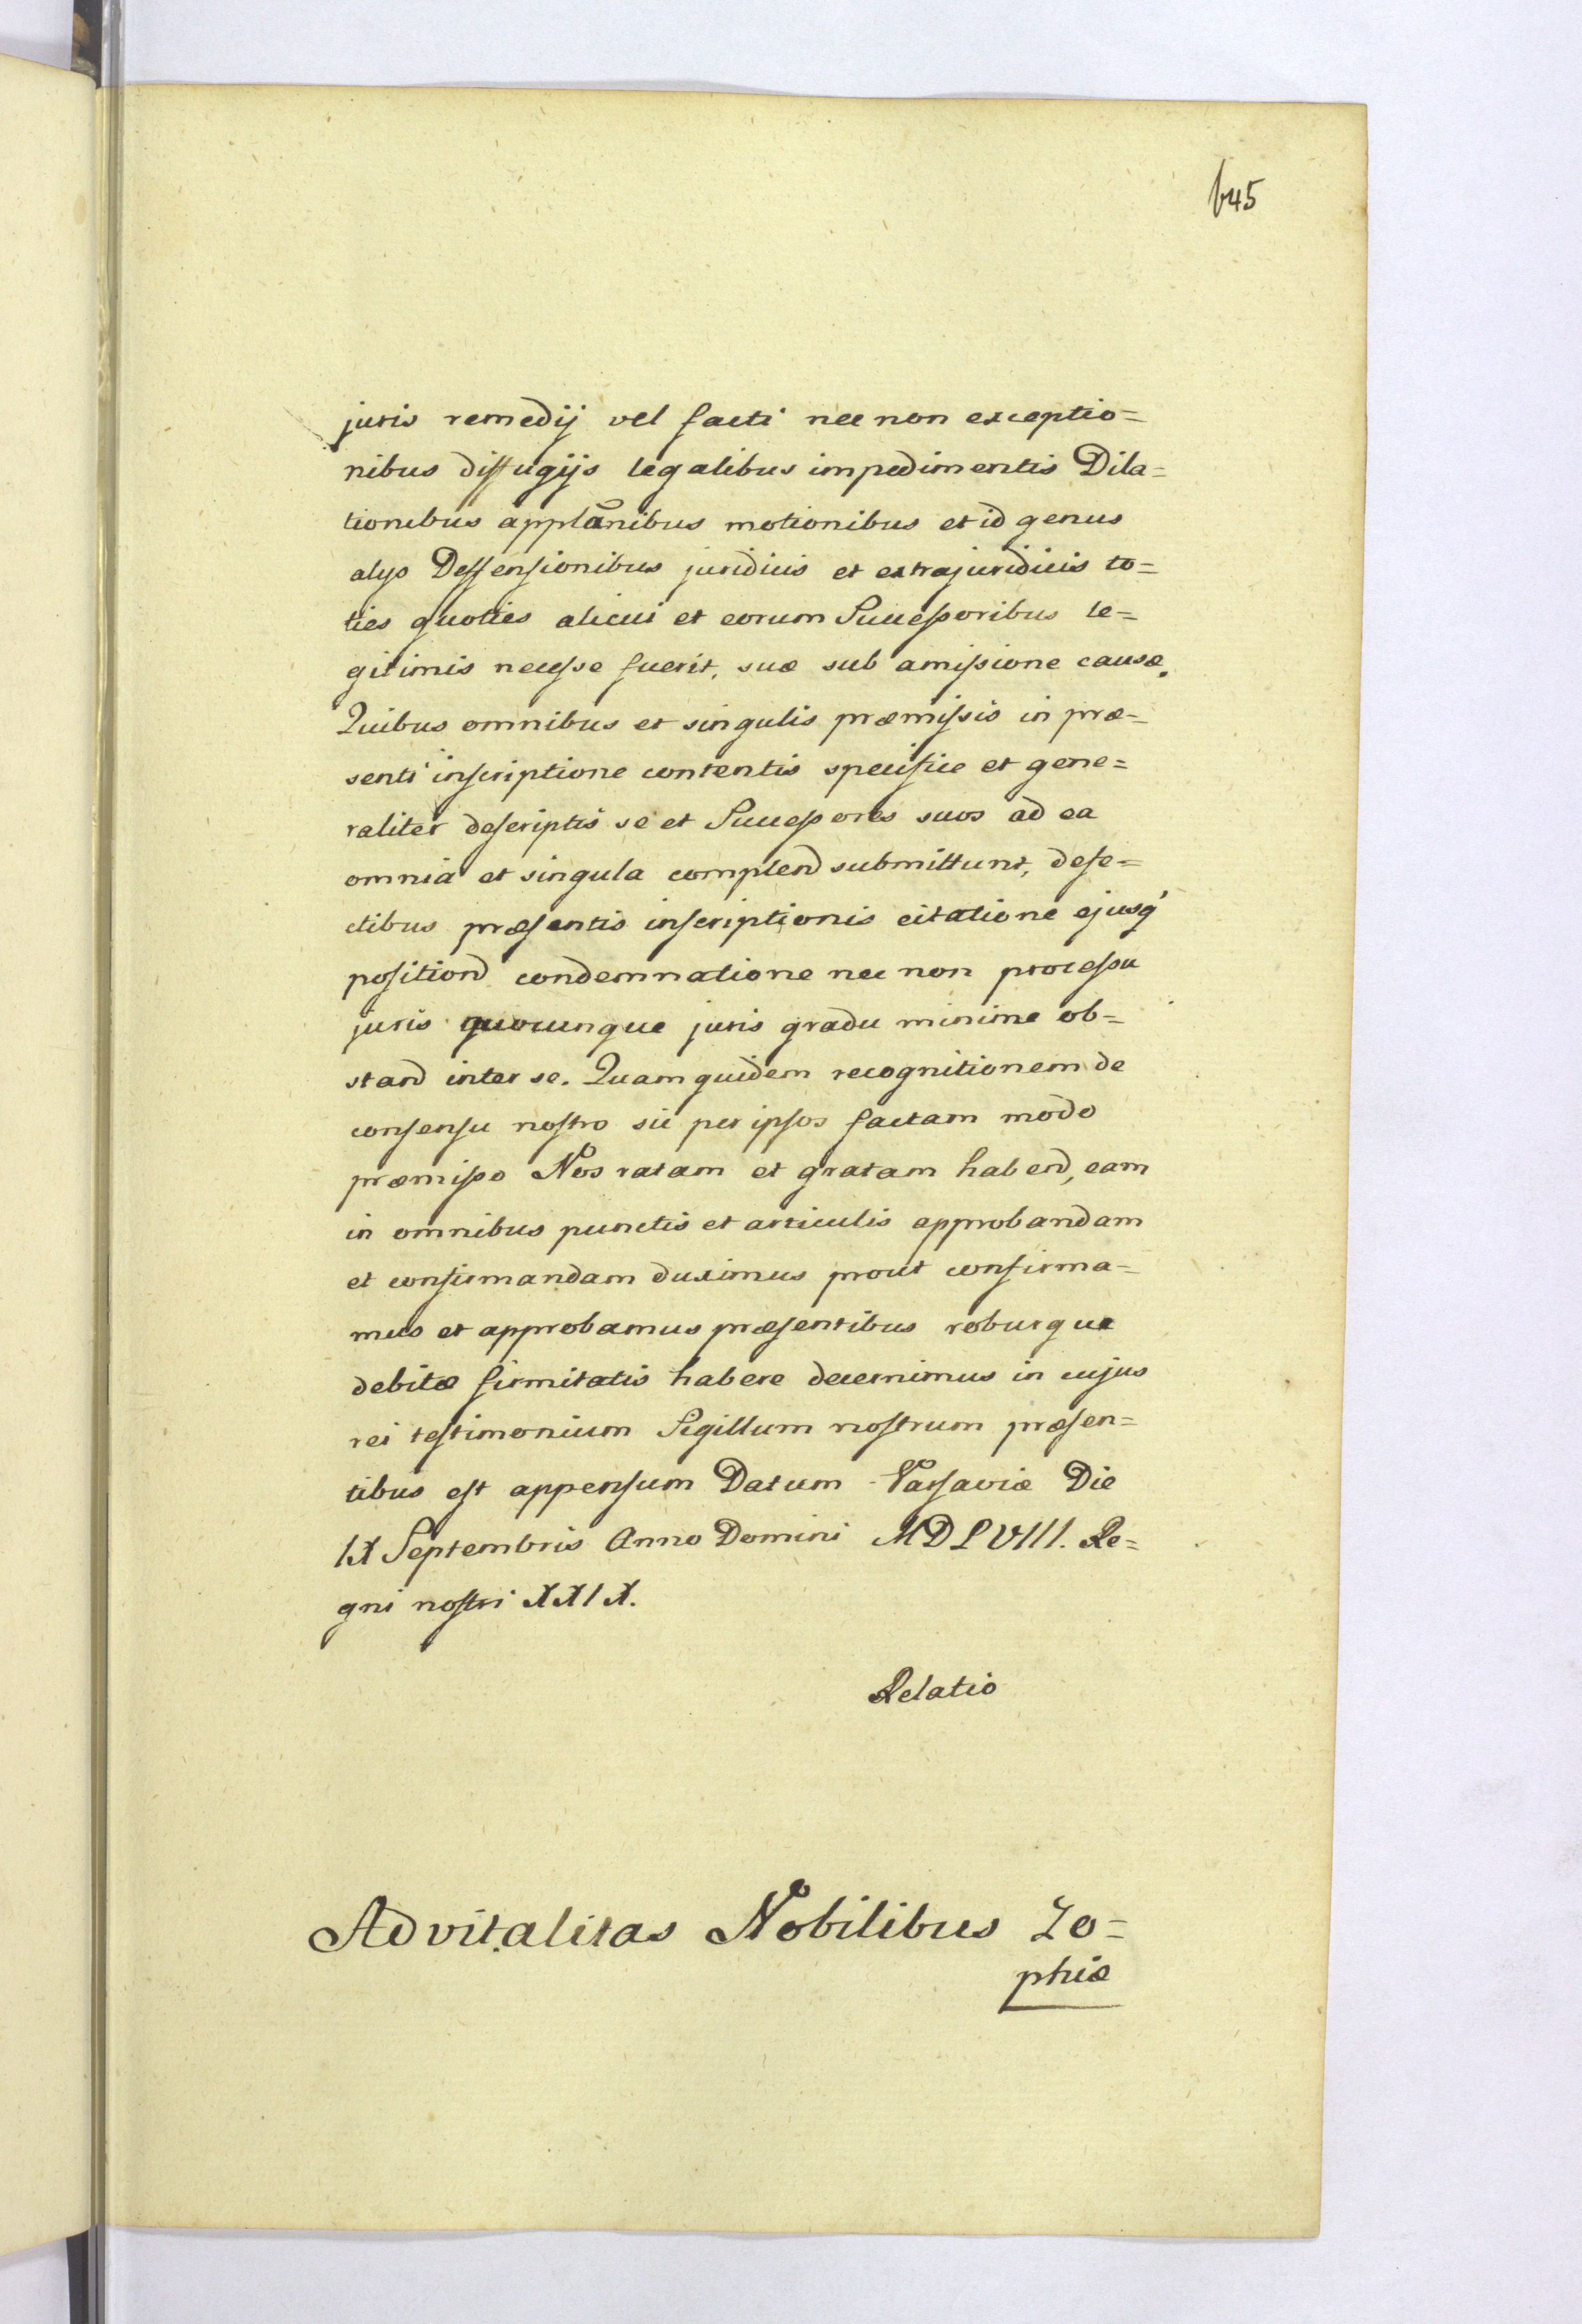 645
juris remedij vel facti nec non exceptio=
nibus diffugijs legalibus impedimentis Dila=
tionibus applãnibus motionibus et id genus
alijs Deffensionibus juridicis et extrajuridicis to=
ties quoties alicui et eorum Successoribus le=
gitimis necesse fuerit, suæ sub amissione causæ.
Quibus omnibus et singulis præmissis in præ=
senti inscriptione contentis specifice et gene=
raliter descriptis se et Successores suos ad ea
omnia et singula complend submittunt, defe=
ctibus præsentis inscriptionis citatione ejusq'
position condemnatione nec non processu
juris quocunque juris gradu minime ob=
stand inter se. Quam quidem recognitionem de
consensu nostro sic per ipsos factam modo
præmisso Nos ratam et gratam habend, eam
in omnibus punctis et articulis approbandam
et confirmandam duximus prout confirma=
mus et approbamus præsentibus roburque
debitæ firmitatis habere decernimus in cujus
rei testimonium Sigillum nostrum præsen=
tibus est appensum Datum Varsaviæ Die
IX Septembris Anno Domini MDLVIII. Re=
gni nostri XXIX.
Relatio
Advitalitas Nobilibus Zo=
phiæ